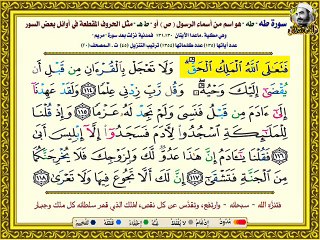 سورة طه - طه - هو اسم من أسماء الرسول (ص) أو - ط هـ - مثل الحروف المقطعة في أوائل بعض السور
وهي مكية . ماعدا الآيتان ١٣٠، ١٣١ فمدنية نزلت بعد سورة "مريم"
عدد آياتها (١٣٥) عدد كلماتها (١٣٥٤) ترتيب التنزيل (٤٥) ت . المصحف (٢٠)
فَتَعَالَى اللَّهُ الْمَلِكُ الْحَقُّ وَلَا تَعْجَلْ بِالْقُرْءَانِ مِن قَبْلِ أَن
يُقْضَىٰ إِلَيْكَ وَحْيُهُ وَقُل رَّبِّ زِدْنِي عِلْمًا ١١٤ وَلَقَدْ عَهِدْنَا
إِلَىٰ ءَادَمَ مِن قَبْلُ فَنَسِيَ وَلَمْ نَجِدْ لَهُ عَزْمًا ١١٥ وَإِذْ قُلْنَا
لِلْمَلَائِكَةِ اسْجُدُوا لِآدَمَ فَسَجَدُوا إِلَّا إِبْلِيسَ أَبَىٰ ١١٦
فَقُلْنَا يَا ءَادَمُ إِنَّ هَٰذَا عَدُوٌّ لَّكَ وَلِزَوْجِكَ فَلَا يُخْرِجَنَّكُمَا
مِنَ الْجَنَّةِ فَتَشْقَىٰ ١١٧ إِنَّ لَكَ أَلَّا تَجُوعَ فِيهَا وَلَا تَعْرَىٰ ١١٨
فتنزه الله - سبحانه - وارتفع، وتقدس عن كل نقص، الملك الذي قهر سلطانه كل ملك وجبار